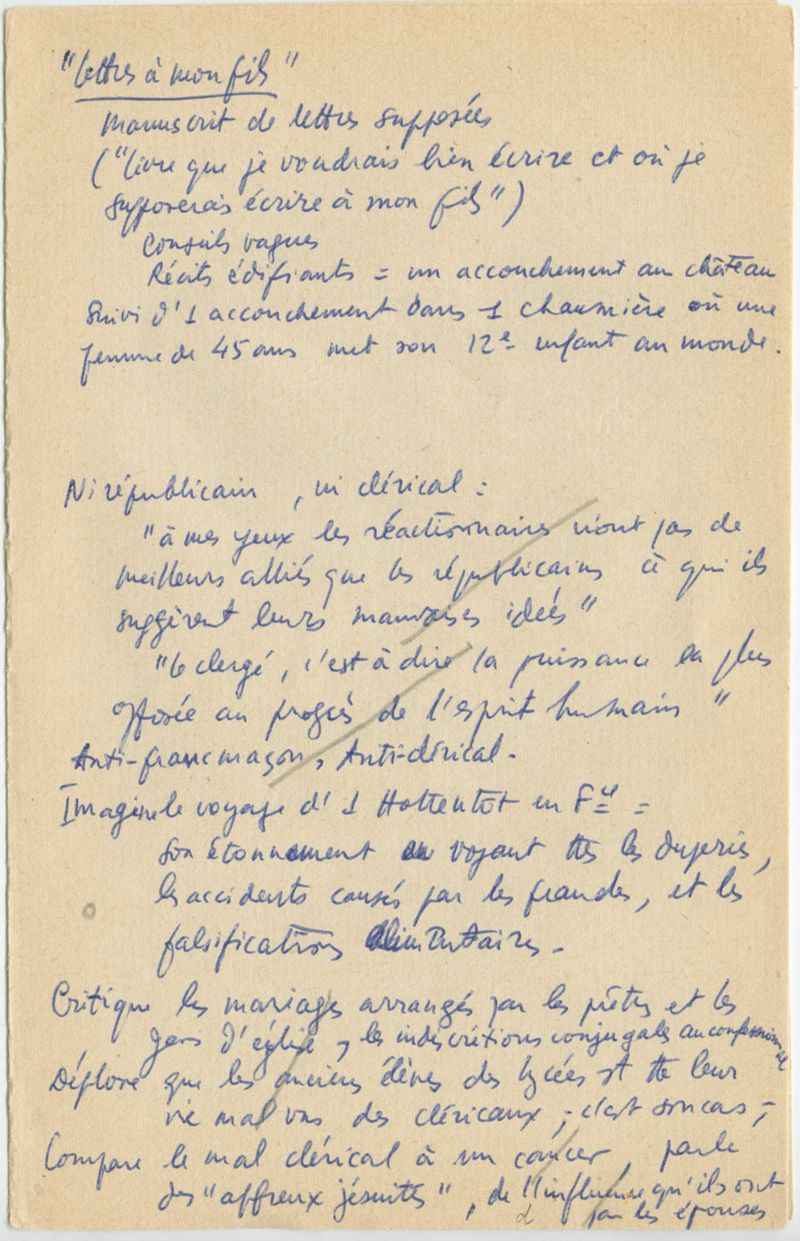 "lettres à mon fils"
Manuscrit de lettres supposées
("livre que je voudrais bien écrire et où je
supposerais écrire à mon fils")
Conseils vagues
Récits édifiants = un accouchement au château
suivi d'1 accouchement dans 1 chaumière où une
femme de 45 ans met son 12e enfant au monde.
Ni républicain, ni clérical :
"à mes yeux les réactionnaires n'ont pas de
meilleurs alliés que les républicains à qui ils
suggèrent leurs mauvaises idées"
"le clergé, c'est à dire la puissance la plus
opposée au progrès de l'esprit humain"
Anti-franc maçon, Anti-clérical.
Imagine le voyage d'1 Hottentot en Fce =
son étonnement en voyant ttes les duperies,
les accidents causés par les fraudes, et les
falsifications alimentaires.
Critique les mariages arrangés par les prêtres et les
gens d'église, les indiscrétions conjugales au confessionnal
Déplore que les anciens élèves des lycées st tte leur
vie mal vus des cléricaux ; c'est son cas ;
Compare le mal clérical à un cancer, parle
des "affreux jésuites", de l'influence qu'ils ont
par les épouses